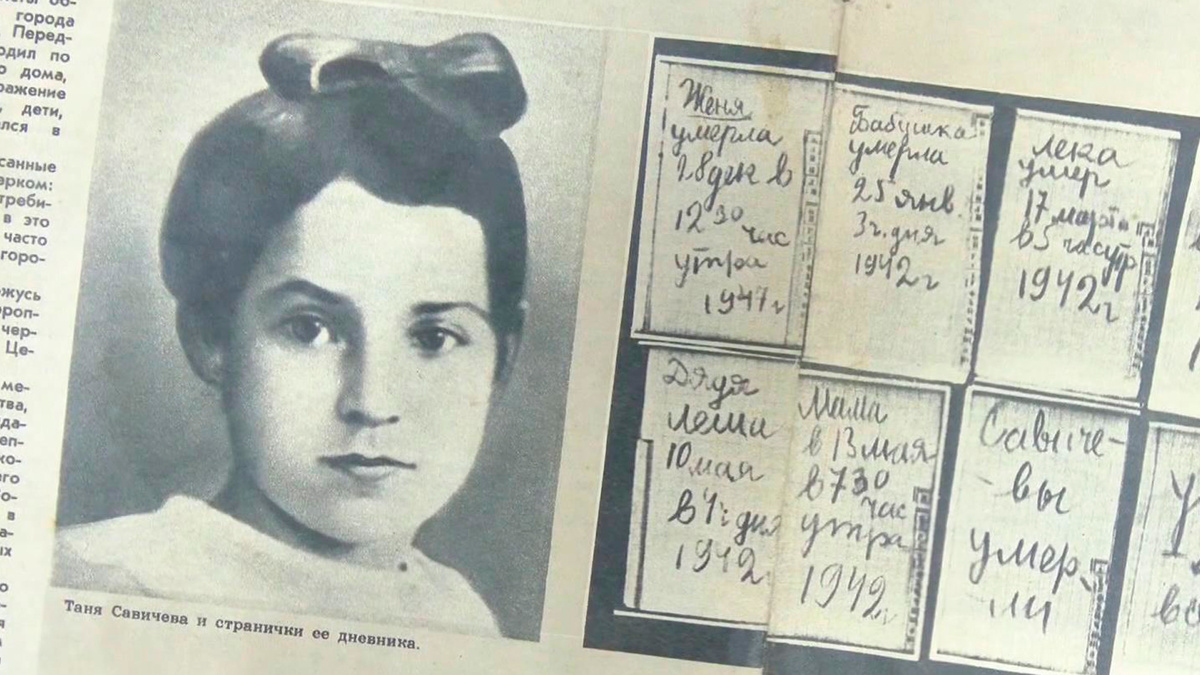 города
Перед-
одил по
о дома,
ражение
, дети,
лся в
санные
арком:
треби-
в это
часто
горо-
жусь
ороп-
чер-
Це-
ме-
тва,
да-
еп-
ко-
его
о-
в
а-
ых
Таня Савичева и странички ее дневника.
Женя
умерла
28 дек в
12 30 час
утра
1941 г
Бабушка
умерла
25 янв.
3 ч. дня
1942 г
Лека
умер
17 марта
в 5 час утр
1942 г
Дядя
Леша
10 мая
в 4 ч дня
1942
Мама
в 13 мая
в 7 30
час
утра
1942 г
Савиче-
вы
умер-
ли